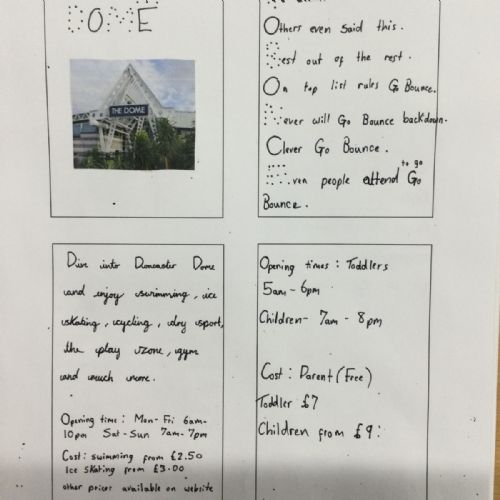 DOME
THE DOME
Others even said this.
Best out of the rest.
On top list rules Go Bounce.
Never will Go Bounce backdown.
Clever Go Bounce.
to go
Even people attend Go
Bounce.
Dive into Doncaster Dome
and enjoy swimming, ice
skating, cycling, dry sport,
the play zone, gym
and much more.
Opening time: Mon-Fri 6am-
10pm Sat-Sun 7am-7pm
Cost: swimming from £2.50
Ice skating from £3.00
other prices available on website
Opening times: Toddlers
5am-6pm
Children- 7am-8pm
Cost: Parent (Free)
Toddler £7
Children from £9: